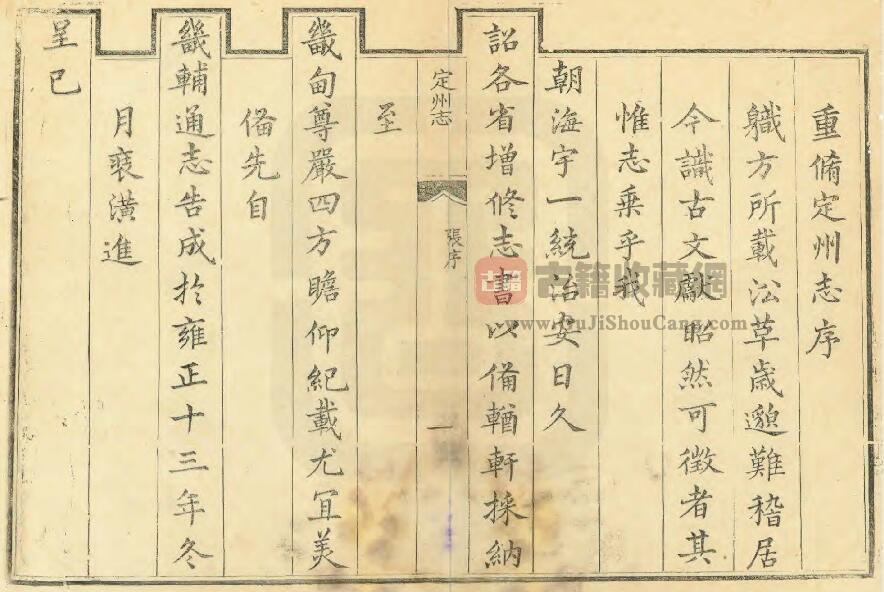 重脩定州志序
職方所載㳂革歲邈難稽居
今識古文獻昭然可徵者其
惟志乗乎我
朝海宇一統治安日久
詔各省增修志書以備輶軒採納
定州志
張序
一
至
畿甸尊嚴四方瞻仰紀載尤宜美
備先自
畿輔通志告成於雍正十三年冬
月裒潢進
呈已
古籍收藏網
www.GuJiShouCang.com